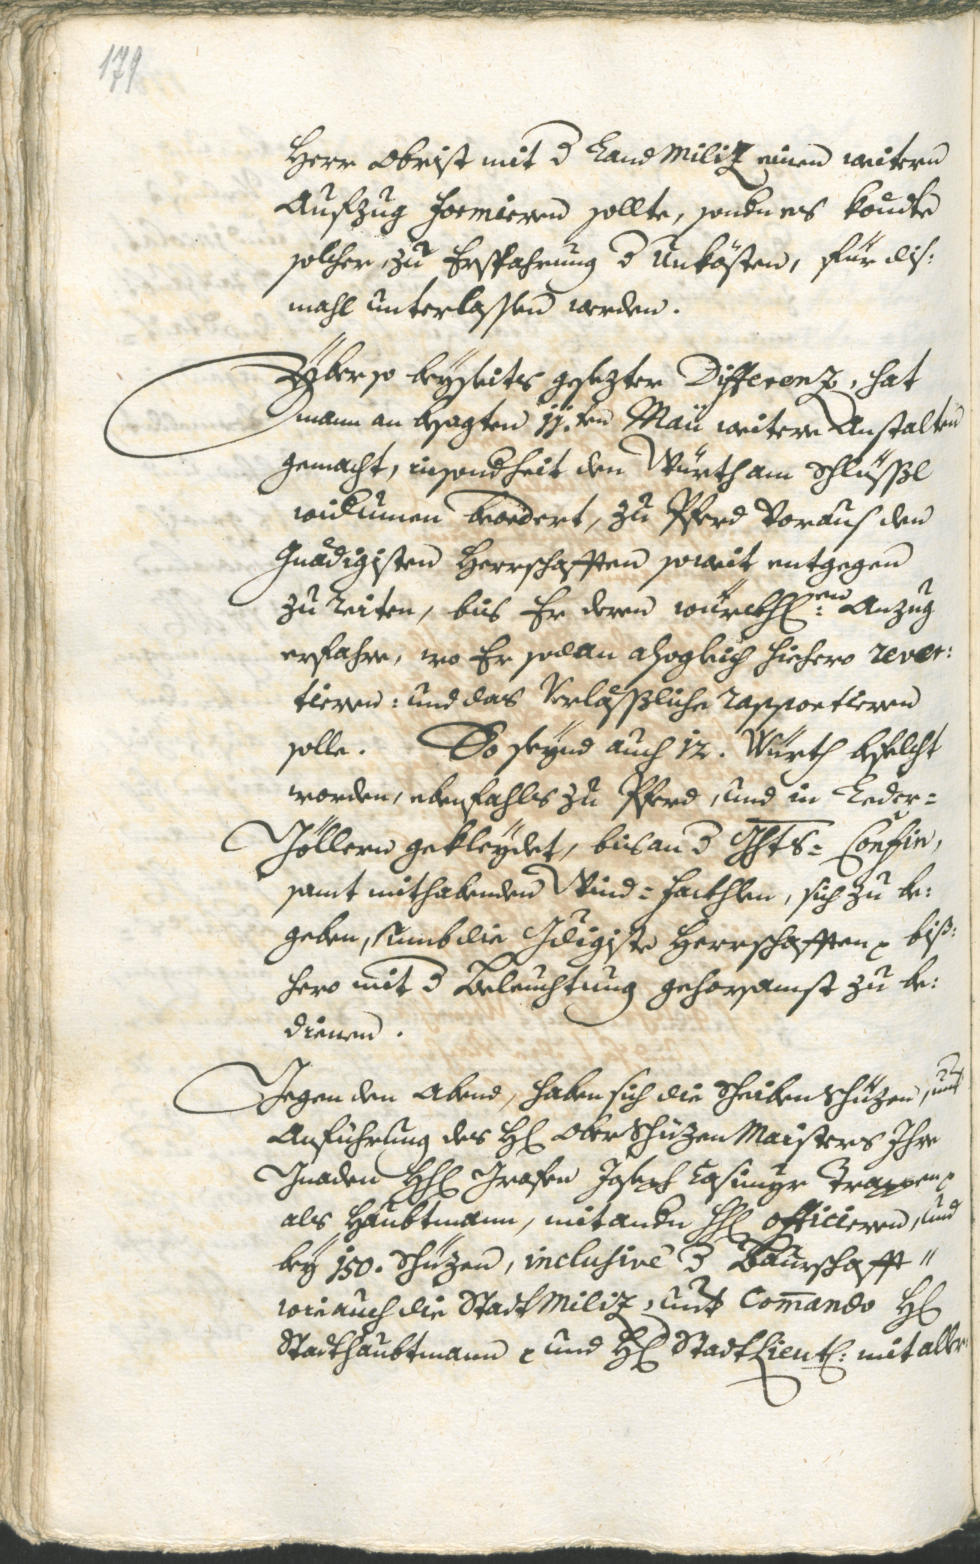 179
Herr Obrist mit d Land Militz einen weitern
Aufzug formieren sollte, sondern es kondte
solcher, zu Ersfahrung d Unkösten, für dis:
mahl unterlassen werden.
Yber so beyseits gesezter Differenz, hat
mann an besagten 11.ten Maii weitere Anstalten
gemacht, insondheit den Würth am Schlüssl
widumen beordert, zu Pferd voraus den
Gnädigisten Herrschafften soweit entgegen
zu reiten, bis Er deren würckhl:en Anzug
erfahre, wo Er sodan alsogleich hiehero rever:
tieren: und das Verlässliche rapportieren
solle. So seynd auch 12. Würth befelcht
worden, ebenfahls zu Pferd, und in Leder=
Göllern gekleydet, bis an d Ghts= Confin,
samt mithabenden Wind=fackhlen, sich zu be:
geben, umb die Gdigiste Herrschafften biß:
hero mit d Beleuchtung gehorsamst zu be:
dienen.
Gegen den Abend, haben sich die Scheiben Schüzen, unt
Anführung des H: Ober Schüzen Maisters Ihre
Gnaden HH: Grafen Joseph Casimyr Trappen
als Haubtmann, mit andn HH: Officieren, und
bey 150. Schüzen, inclusivè d Baurschafft "
wie auch die Stadt Militz, unt Commando H:
Stadthaubtmann und H: Stadt Lieut: mit aller